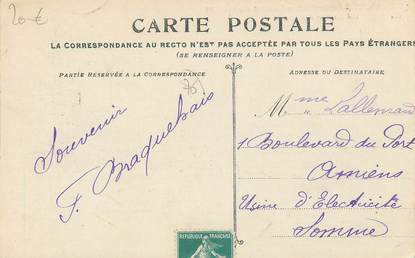 20 €
CARTE POSTALE
LA CORRESPONDANCE AU RECTO N'EST PAS ACCEPTÉE PAR TOUS LES PAYS ÉTRANGERS
(SE RENSEIGNER A LA POSTE)
PARTIE RÉSERVÉE A LA CORRESPONDANCE
ADRESSE DU DESTINATAIRE
Souvenir
F. Braquehais
Mme Lallemand
1 Boulevard du Port
Amiens
Usine d'Electricité
Somme
REPUBLIQUE FRANÇAISE